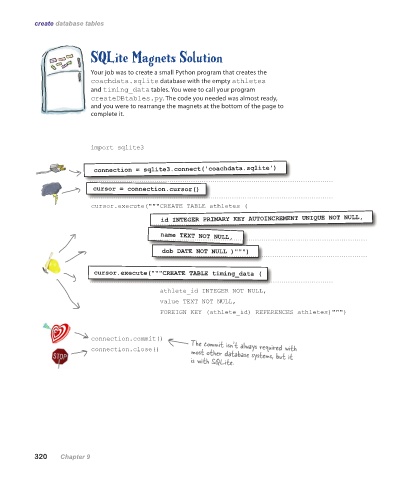 create database tables
SQLite Magnets Solution
Your job was to create a small Python program that creates the
coachdata.sqlite database with the empty athletes
and timing_data tables. You were to call your program
createDBtables.py. The code you needed was almost ready,
and you were to rearrange the magnets at the bottom of the page to
complete it.
import sqlite3
connection = sqlite3.connect('coachdata.sqlite')
cursor = connection.cursor()
cursor.execute("""CREATE TABLE athletes (
id INTEGER PRIMARY KEY AUTOINCREMENT UNIQUE NOT NULL,
name TEXT NOT NULL,
dob DATE NOT NULL )""")
cursor.execute("""CREATE TABLE timing_data (
athlete_id INTEGER NOT NULL,
value TEXT NOT NULL,
FOREIGN KEY (athlete_id) REFERENCES athletes)""")
connection.commit()
connection.close()
The commit isn't always required with
most other database systems, but it
is with SQLite.
STOP
320 Chapter 9